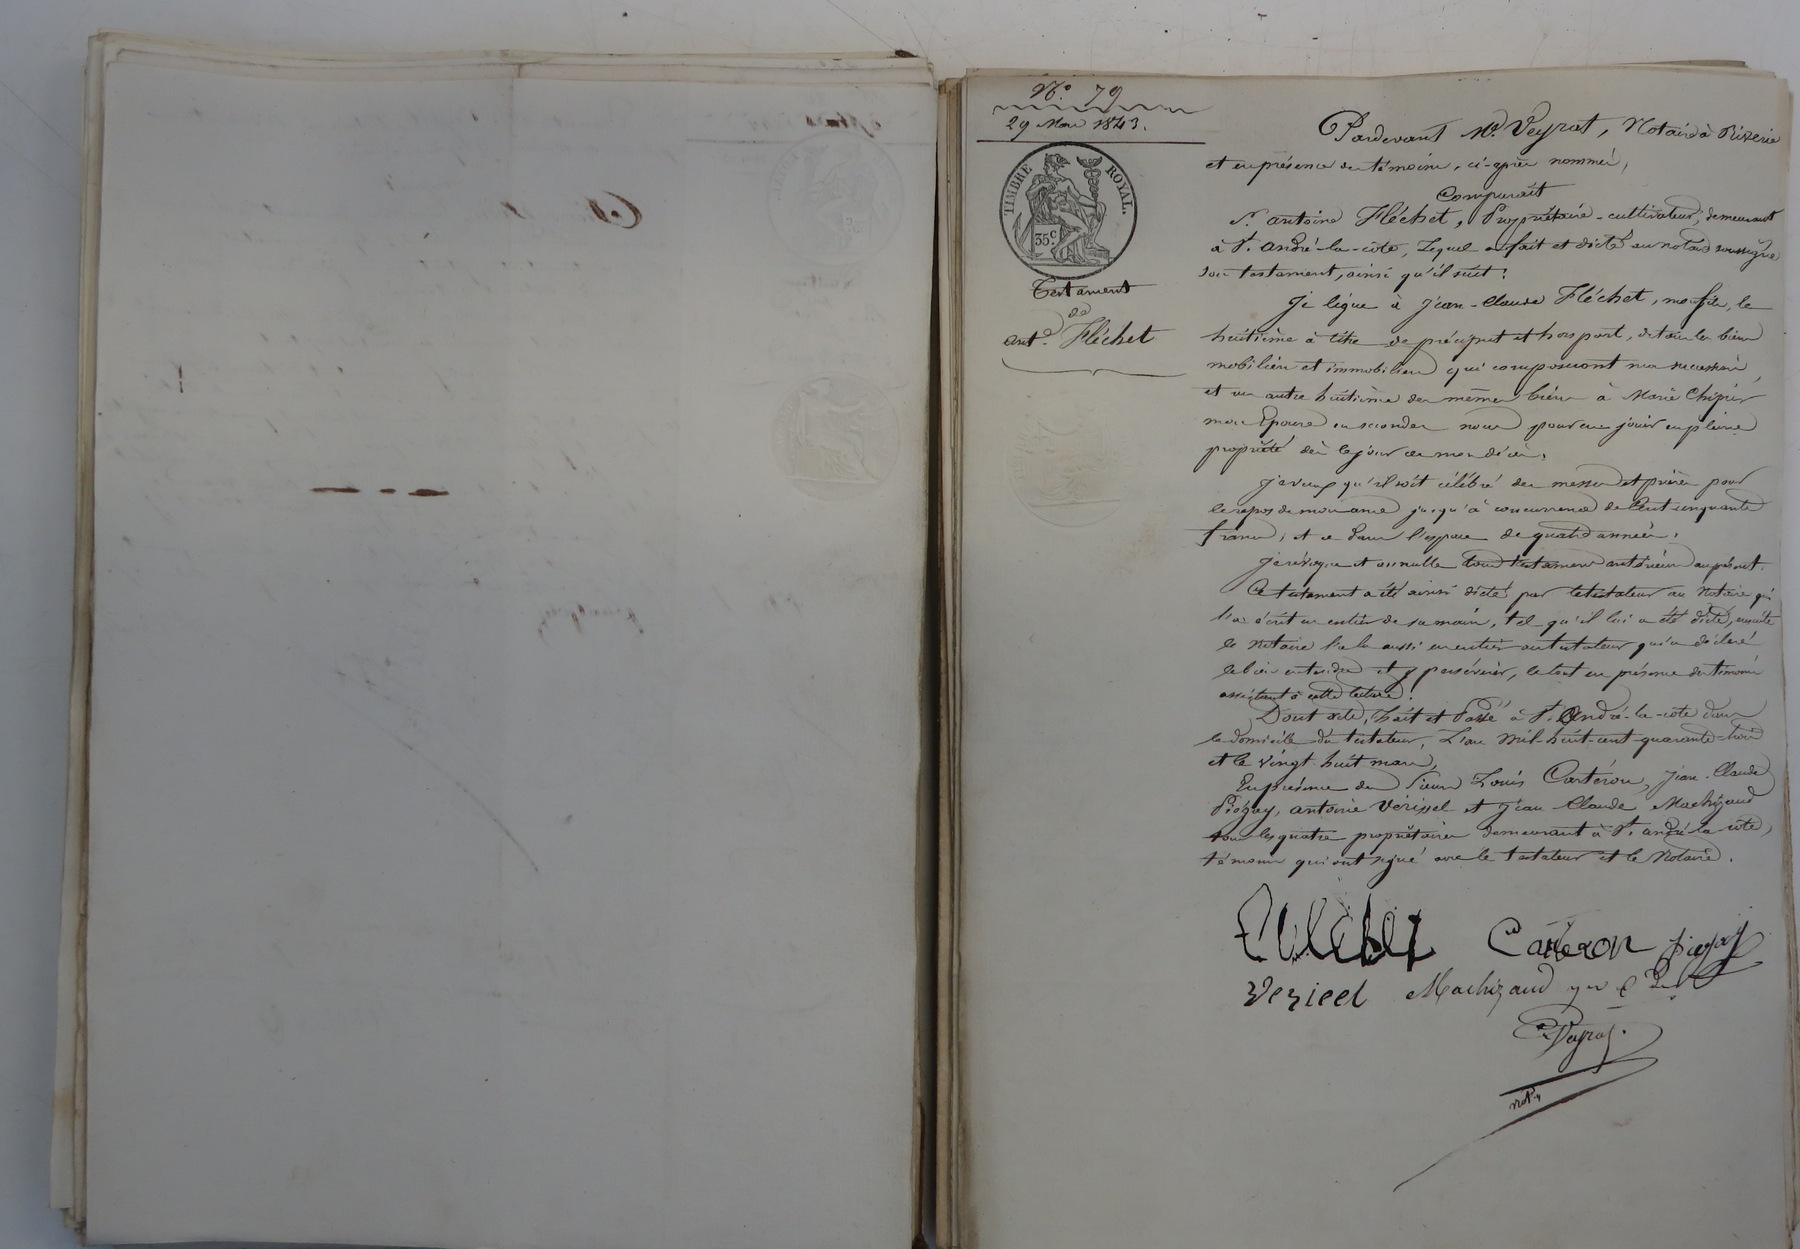 N.o 79
29 Mars 1843.
TIMBRE ROYAL.
35 c
Testament
de
Ant.e Fléchet
Pardevant M.e Veyrat, Notaire à Riverie
et en présence des témoins, ci-après nommés,
Comparait
S.r Antoine Fléchet, Propriétaire-cultivateur, demeurant
à S.t André-la-côte, Lequel a fait et dicté au notaire soussigné
son testament, ainsi qu'il suit:
Je lègue à Jean-Claude Fléchet, mon fils, le
huitième à titre de préciput et hors part, de tous les biens
mobiliers et immobiliers qui composeront ma succession,
et un autre huitième des mêmes biens à Marie
mon Epouse en secondes noces pour en jouir en pleine
propriété dès le jour de mon décès.
Je veux qu'il soit célébré des messes et prières pour
le repos de mon ame jusqu'à concurrence de Cent cinquante
francs, et ce dans l'espace de quatre années.
Je révoque et annulle tous testaments antérieurs au présent.
Ce testament a été ainsi dicté par le testateur au Notaire qui
l'a écrit en entier de sa main, tel qu'il lui a été dicté, ensuite
le Notaire l'a lu aussi en entier au testateur qui a déclaré
le bien entendre et y persévérer, le tout en présence des témoins
assistant à cette lecture.
Dont acte, Fait et Passé à S.t André-la-côte dans
le domicile du testateur, L'an Mil-huit-cent-quarante-trois
et le vingt huit mars,
En présence des Sieurs Louis Cartéron, Jean-Claude
Piégay, Antoine Vérissel et Jean Claude Machizaud
tous les quatre propriétaires demeurant à S.t André-la-côte,
témoins qui ont signé avec le testateur et le Notaire.
Fléchet Carteron Piegay
Machizaud
Veyrat.
not.e